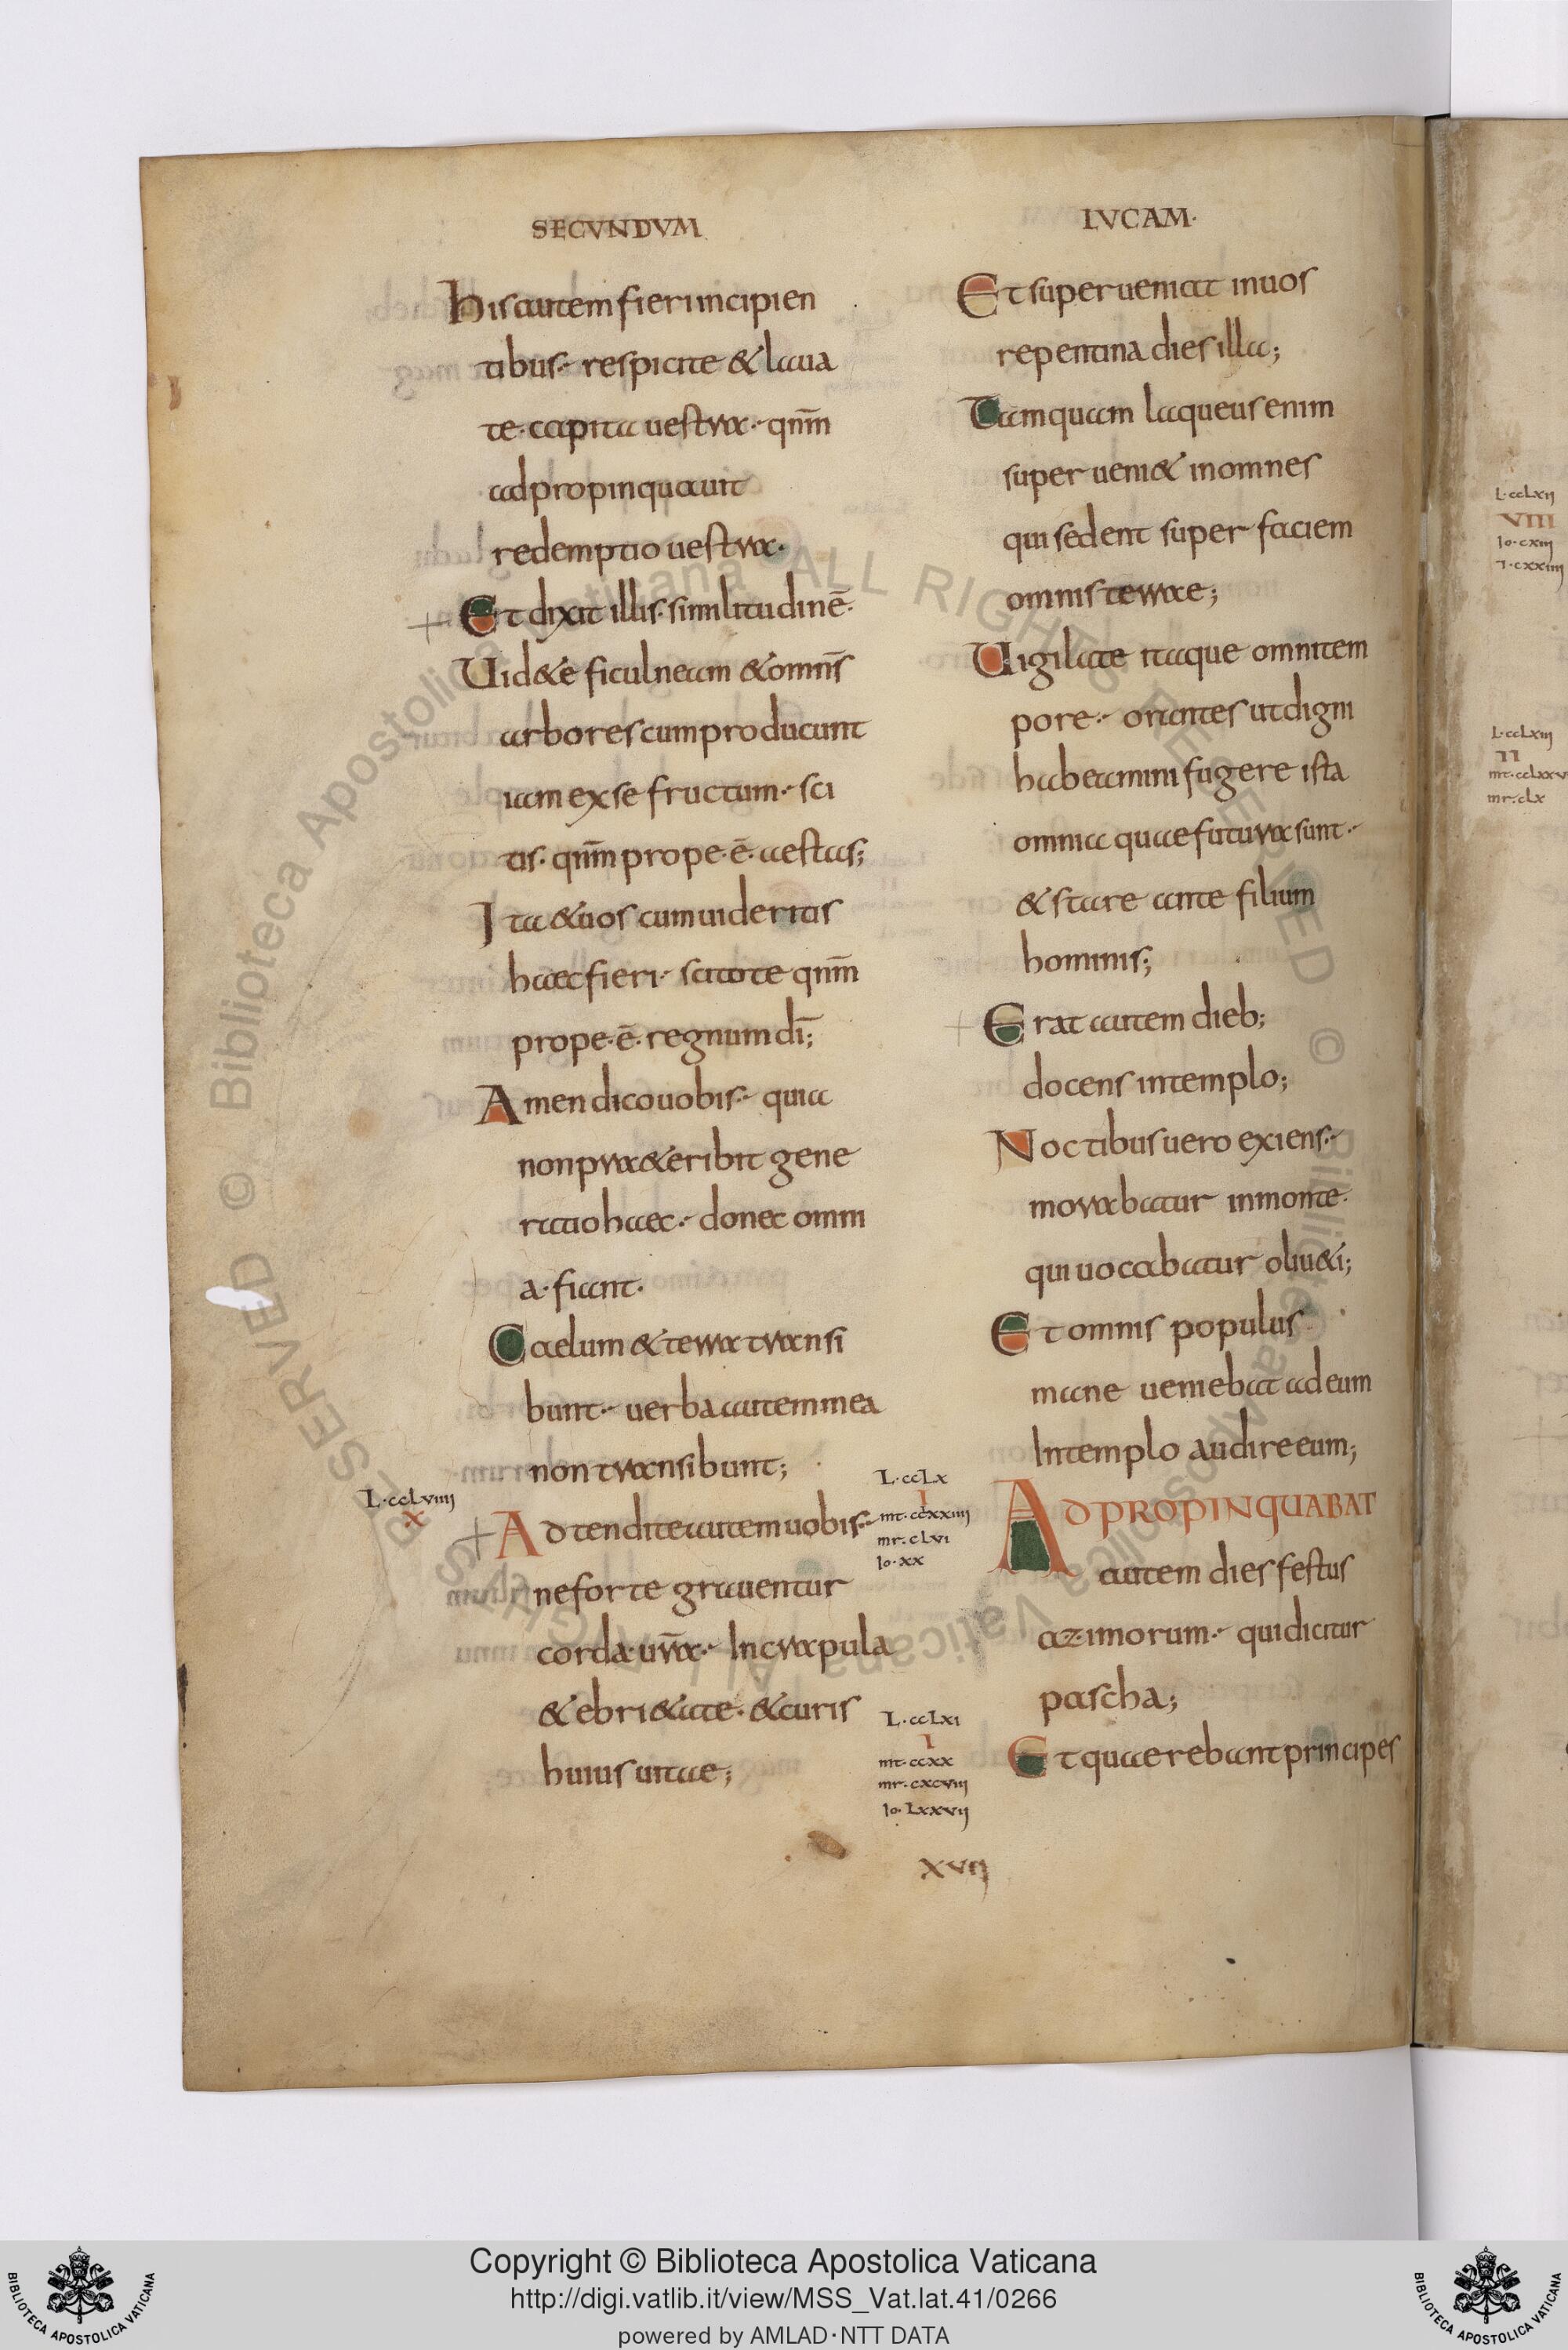 SECVNDVM
hisautemfieriincipien
tibus· respicite & leuua
te·capita uestra· qnm̄
adpropinquauit
redemptio uestra·
Et dixit illis·similitudinē·
Uid&e ficulneam &omn̄s
arborescumproducunt
iamexse fructum· sci
tis· qnm̄prope·ē·aestas;
Ita&uos cumuideritis
haecfieri· scitote qnm̄
prope·ē·regnumdī;
Amendicouobis· quia
nonpraeteribit gene
ratiohaec· donec omni
a·fiant·
Caelum &terra transi
bunt· uerbaautemmea
nontransibunt;
L·ccLviiii
x
Adtenditeautemuobis·
neforte grauentur
corda·ur̄a· Incrapula
&ebri&ate·&curis
huiusuitae;
L·ccLx
I
mt·ccxxiiii
mr·cLvi
Io·xx
L·ccLxi
I
mt·ccxx
mr·cxcviii
Io·Lxxvii
xvii
LVCAM·
Etsuperueniat inuos
repentina dies illa;
Tamquam laqueusenim
super ueni& inomnes
qui sedent super faciem
omnisterrae;
Uigilate itaque omnitem
pore· orantesutdigni
habeamini fugere ista
omnia quaefuturasunt·
&stare ante filium
hominis;
Erat autem dieb;
docens intemplo;
Noctibusuero exiens·
morabatur inmonte·
qui uocabatur oliu&i;
Etomnis populus
mane ueniebat adeum
Intemplo audireeum;
ADPROPINQUABAT
autem dies festus
azimorum· quidicitur
pascha;
Etquaerebantprincipes
L·ccLxii
VIII
Io·cxiii
I·cxxiiii
L·ccLxiii
II
mt·ccLxxv
mr·cLx
Copyright © Biblioteca Apostolica Vaticana
http://digi.vatlib.it/view/MSS_Vat.lat.41/0266
powered by AMLAD·NTT DATA